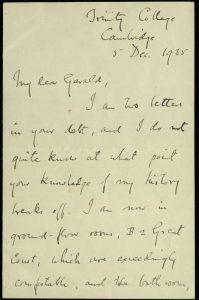 Trinity College
Cambridge
5 Dec. 1935
My dear Gerald,
I am two letters
in your debt, and I do not
quite know at what point
your knowledge of my history
breaks off. I am now in
ground-floor rooms, B 2 Great
Court, which are exceedingly
comfortable, and the bathroom,